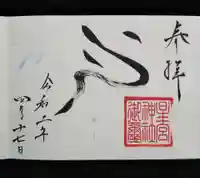 奉拝
星宮
神社
令和二年
四月十七日